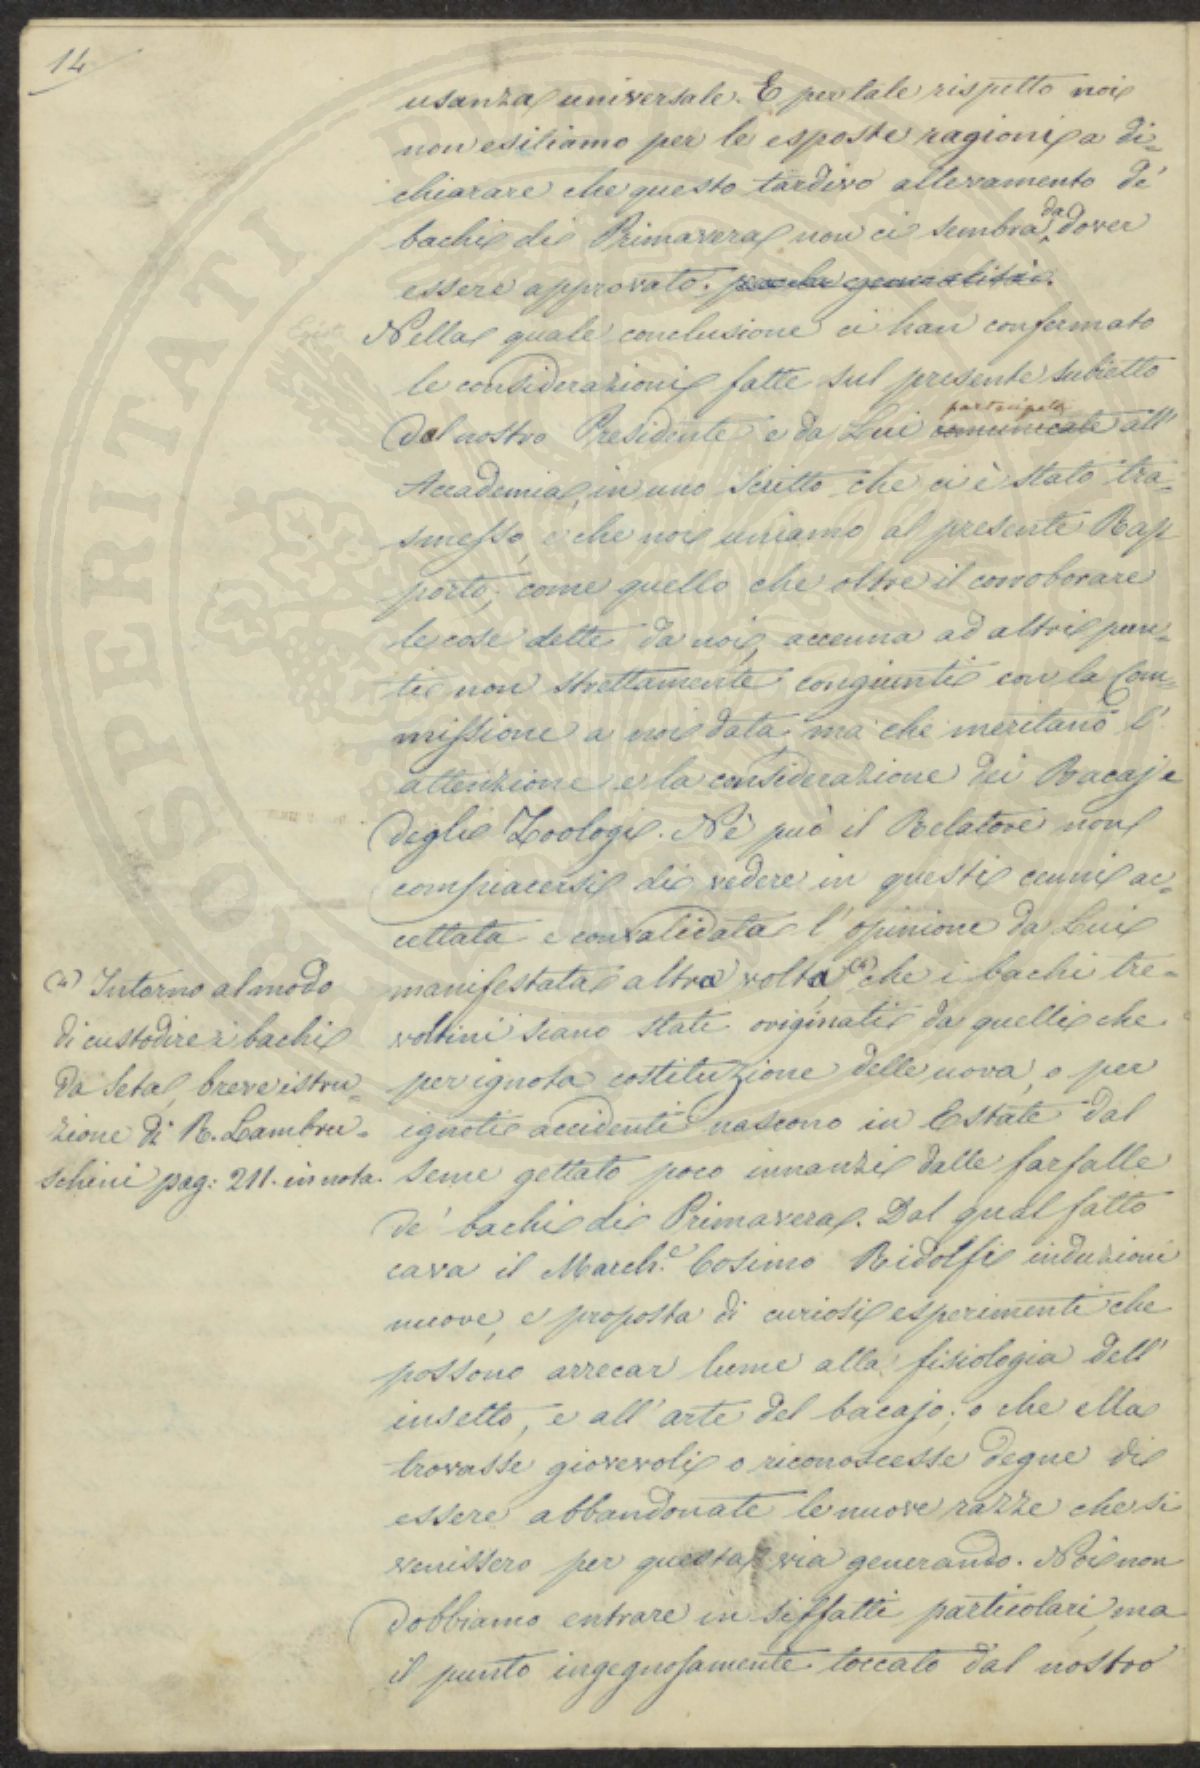 14
usanza universale. E per tale rispetto noi
non esitiamo per le esposte ragioni a di=
chiarare che questo tardivo allevamento de'
bachi di Primavera non ci sembra da dover
essere approvato.
Nella quale conclusione ci han confermato
le considerazioni fatte sul presente subietto
dal nostro Presidente e da Lui partecipate comunicate all'
Accademia, in uno scritto che ci è stato tra=
smesso, e che noi uniamo al presente Rap
porto; come quello che oltre il corroborare
le cose dette da noi, accenna ad altri pun=
ti non strettamente congiunti con la Com=
missione a noi data ma che meritano l'
attenzione e la considerazione dei Bacaj e
degli Zoologi. Nè può il Relatore non
compiacersi di vedere in questi cenni ac=
cettata e convalidata l'opinione da Lui
manifestata altra volta (a) che i bachi tre=
voltini siano stati originati da quelli che
per ignota costituzione delle uova, o per
ignoti accidenti nascono in Estate dal
seme gettato poco innanzi dalle farfalle
de' bachi di Primavera. Dal qual fatto
cava il March.e Cosimo Ridolfi induzioni
nuove, e proposta di curiosi esperimenti che
possono arrecar lume alla fisiologia dell'
insetto, e all'arte del bacajo; o che ella
trovasse giovevoli o riconoscesse degne di
essere abbandonate le nuove razze che si
venissero per questa via generando. Noi non
dobbiamo entrare in siffatti particolari, ma
il punto ingegnosamente toccato dal nostro
(a) Intorno al modo
di custodire i bachi
da Seta, breve istru=
zione di R. Lambru=
schini pag: 211. in nota.
PROSPERITATI PUBLICAE